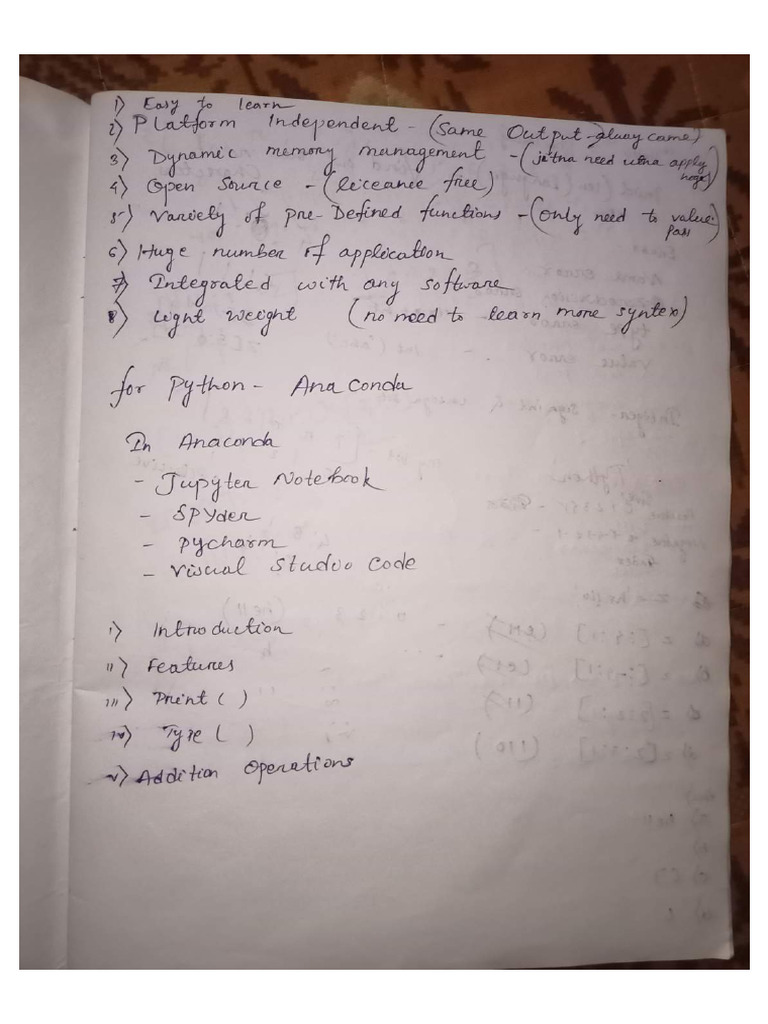 1) Easy to learn
2) Platform Independent - (Same Output
3) Dynamic memory management - (jitna need utna apply
hoga)
4) Open Source - (liceance free)
5) Variety of pre-Defined functions - (Only need to value
pass)
6) Huge number of application
7) Integrated with any software
8) Light weight (no need to learn more syntex)
for Python - Anaconda
In Anaconda
- Jupyter Notebook
- SPYder
- pycharm
- Visual Studio Code
i) Introduction
ii) Features
iii) Print ( )
iv) Type ( )
v) Addition Operations